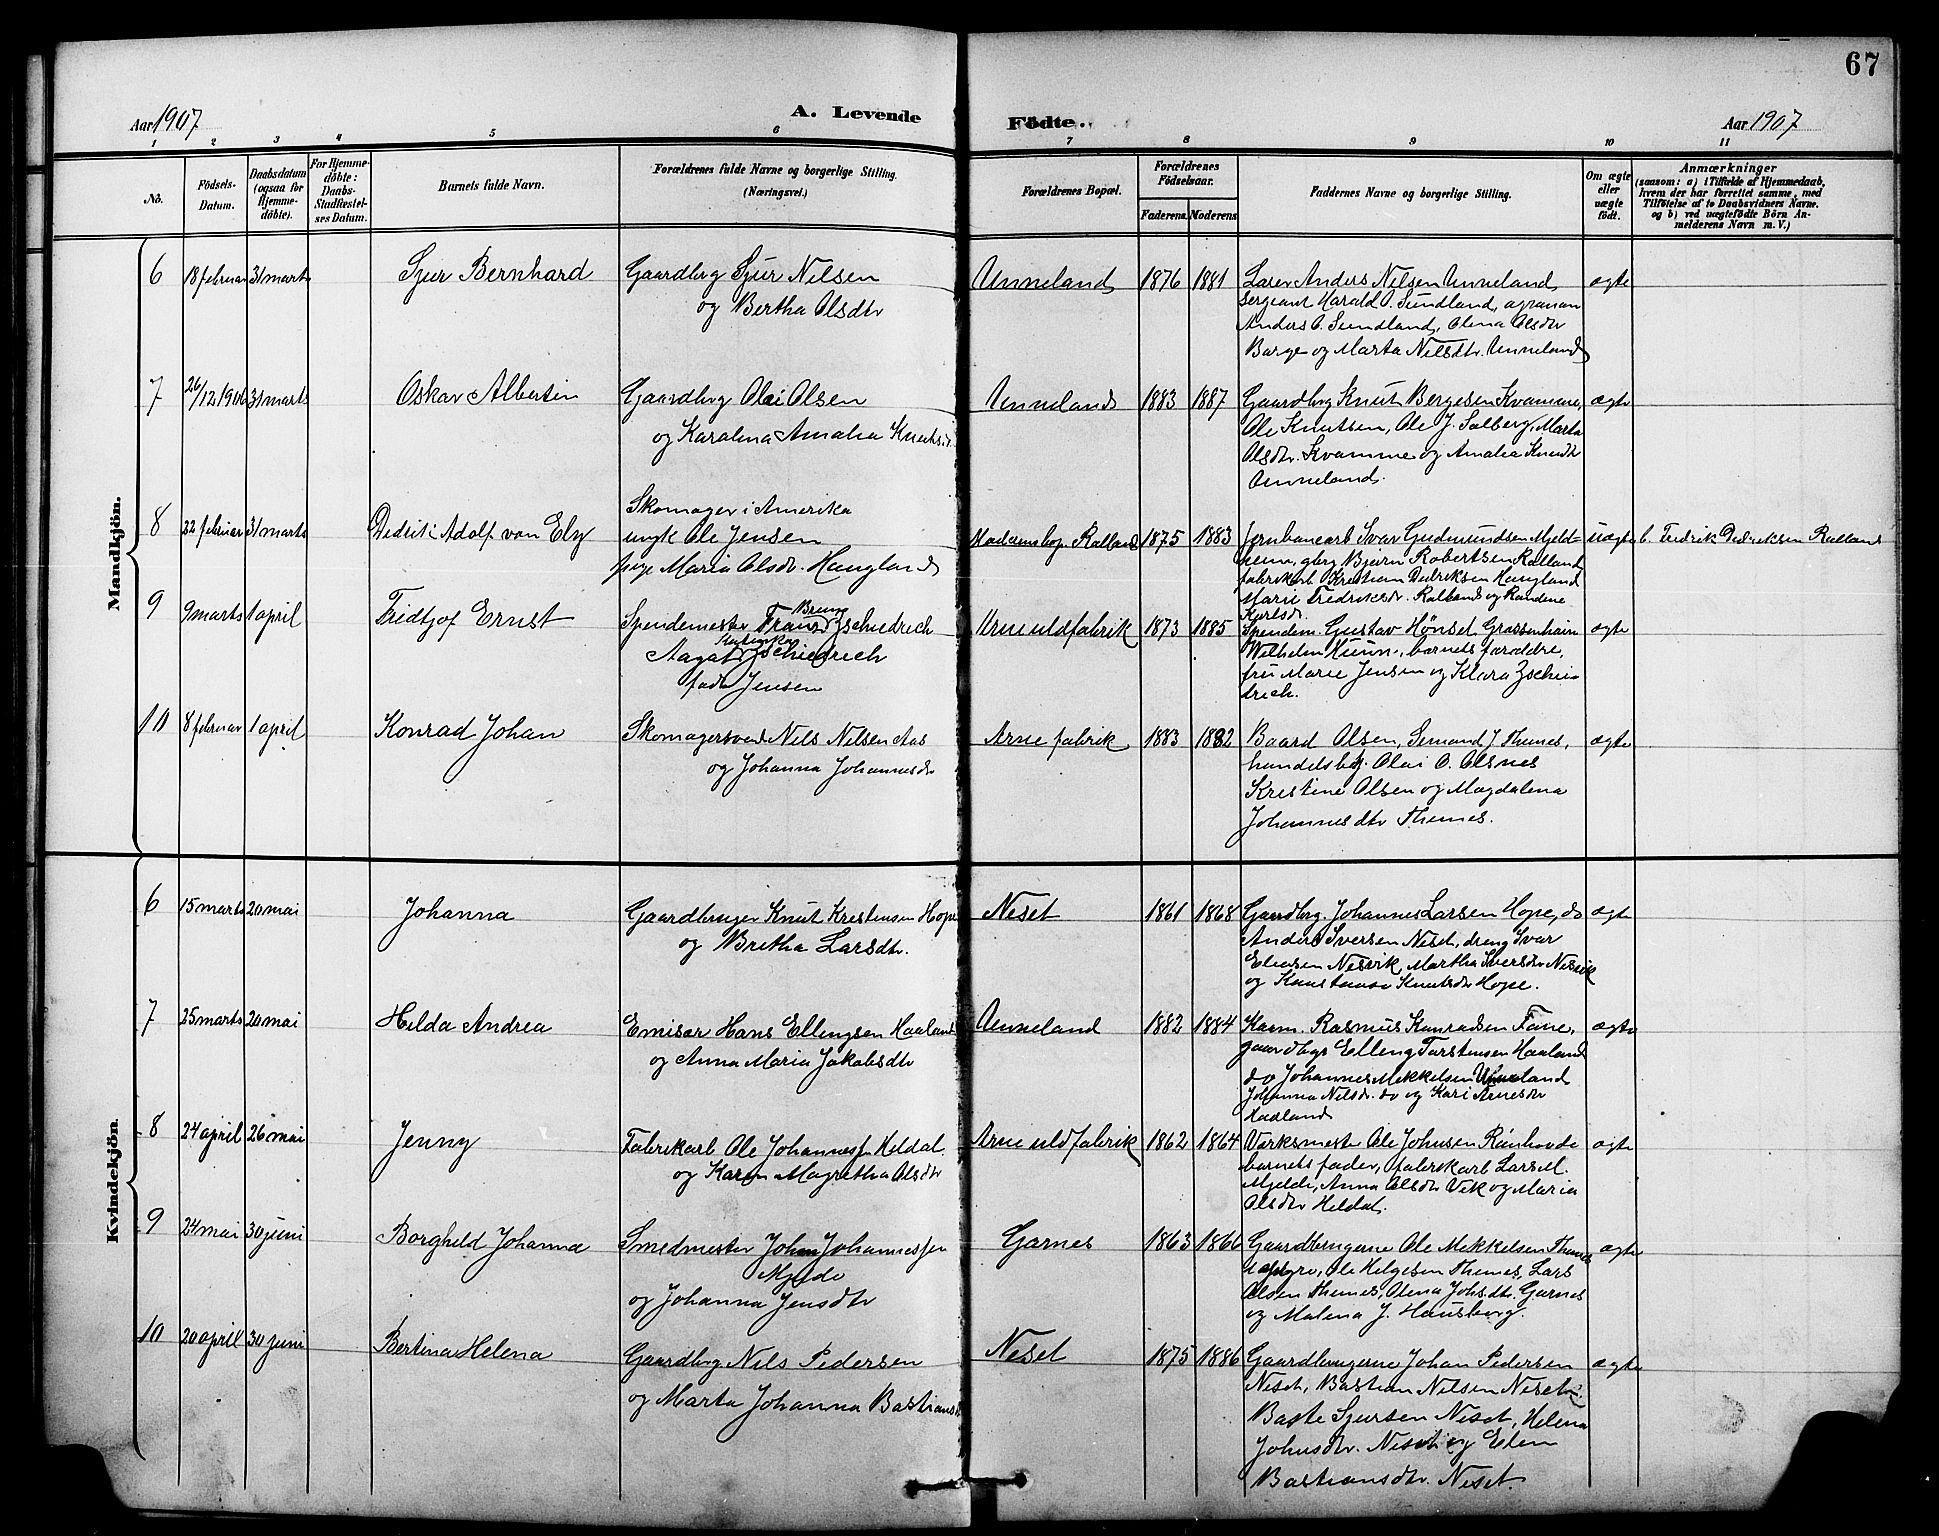 67
Aar 1907
A. Levende
Födte.
Aar 1907
1 2 3 4 5 6 7 8 9 10 11
No.
Födsels-Datum.
Daabsdatum (ogsaa for Hjemme-döbte).
For Hjemme-döbte: Daabs-Stadfæstel-ses Datum.
Barnets fulde Navn.
Forældrenes fulde Navne og borgerlige Stilling. (Næringsvei.)
Forældrenes Bopæl.
Forældrenes Födselsaar.
Faderens. Moderens
Faddernes Navne og borgerlige Stilling.
Om ægte eller uægte födt.
Anmærkninger
(saasom: a) i Tilfælde af Hjemmedaab,
hvem der har forrettet samme, med
Tilföielse af to Daabsvidners Navne.
og b) ved uægtefödte Börn An-
melderens Navn m. V.)
Mandkjön.
6 18 februar 31 marts Sjur Bernhard Gaardbrg Sjur Nilsen Unneland 1876 1881 Anders Nilsen Unneland ægte
og Bertha Olsdtr
Sergeant Harald O. Sundland,
Anders O. Sundland, Olina Olsdtr
Borge og Marta Nilsdtr. Unneland
7 26/12 1906 31 marts Oskar Albertin Gaardbrg Olai Olsen Unneland 1883 1887 Gaardbrg Knut Bergesen Kvamme, ægte
og Karolina Amalia
Ole Knutsen, Ole J. Solberg, Marta
Olsdtr. Kvamme og Amalia
Unneland.
8 22 februar 31 marts Adolf van Ely
Skomager i Amerika
ungk Ole Jensen
pige Maria Olsdtr. Haugland
Rolland 1875 1883 Jernbanearb Ivar Gudmundsen Mjeld- uægte b. Fredrik Dedriksen Rolland
heim, gbrg Bjørn Robertsen Rolland
fabrikarb Kristian Dedriksen Haugland
Marie Fredriksdr. Rolland og Randine
9 9 marts 1 april Fridtjof Ernst
Bruno
Spindemester Franz Zschiedrich
Zschiedrich
født Jensen
Arne uldfabrik 1873 1885 Spindem. Gustav Hønsel Grossenhain ægte
Wilhelm barnets forældre,
fru Marie Jensen og Klara Zschie
drich.
10 8 februar 1 april Konrad Johan Skomagersvend Nils Nilsen Aas Arne fabrik 1883 1882 Baard Olsen, J. Thunes, ægte
og Johanna Johannesdtr
Olai O. Olsnes
Kristine Olsen og Magdalena
Johannesdtr Thunes.
Kvindekjön.
6 15 marts 20 mai Johanna Gaardbruger Knut Kristensen Hope Neset 1861 1868 Gaardbrg. Johannes Larsen Hope, do ægte
og Bretha Larsdtr.
Anders Iversen Neset, dreng Ivar
Eliasen Nesvik, Martha Iversdtr Nesvik
og Knutsdtr Hope.
7 25 marts 20 mai Hilda Andrea Emisær Hans Ellingsen Haaland Unneland 1882 1884 Rasmus Konradsen Fane, ægte
og Anna Maria Jakobsdtr
Elling Torstensen Haaland
do Johannes Mikkelsen Unneland
Johanna Nilsdr. do og Kari Arnesdtr
Haaland
8 24 april 26 mai Jenny Fabrikarb Ole Johannessen Heldal Arne uldfabrik 1862 1864 Værksmester Ole Johnsen Rånhovde ægte
og Karen Magretha Olsdtr
barnets fader, fabrikarb Lars
Mjelde, Anna Olsdtr Vik og Maria
Olsdtr Heldal.
9 24 mai 30 juni Borghild Johanna Smedmester Johan Johannessen Garnes 1863 1866 Gaardbrugerne Ole Mikkelsen Thunes ægte
Mjelde
og Johanna Jensdtr
Ole Helgesen Thunes, Lars
Olsen Thunes, Olena Johsdtr. Garnes
og Malena J. Hausberg.
10 20 april 30 juni Bertina Helena Gaardbrg Nils Pedersen Neset 1875 1886 Gaardbrugerne Johan Pedersen ægte
og Marta Johanna Bastiansd
Neset, Bastian Nilsen Neset,
Baste Sjursen Neset, Helena
Johnsdtr. Neset og Elen
Bastiansdtr. Neset.